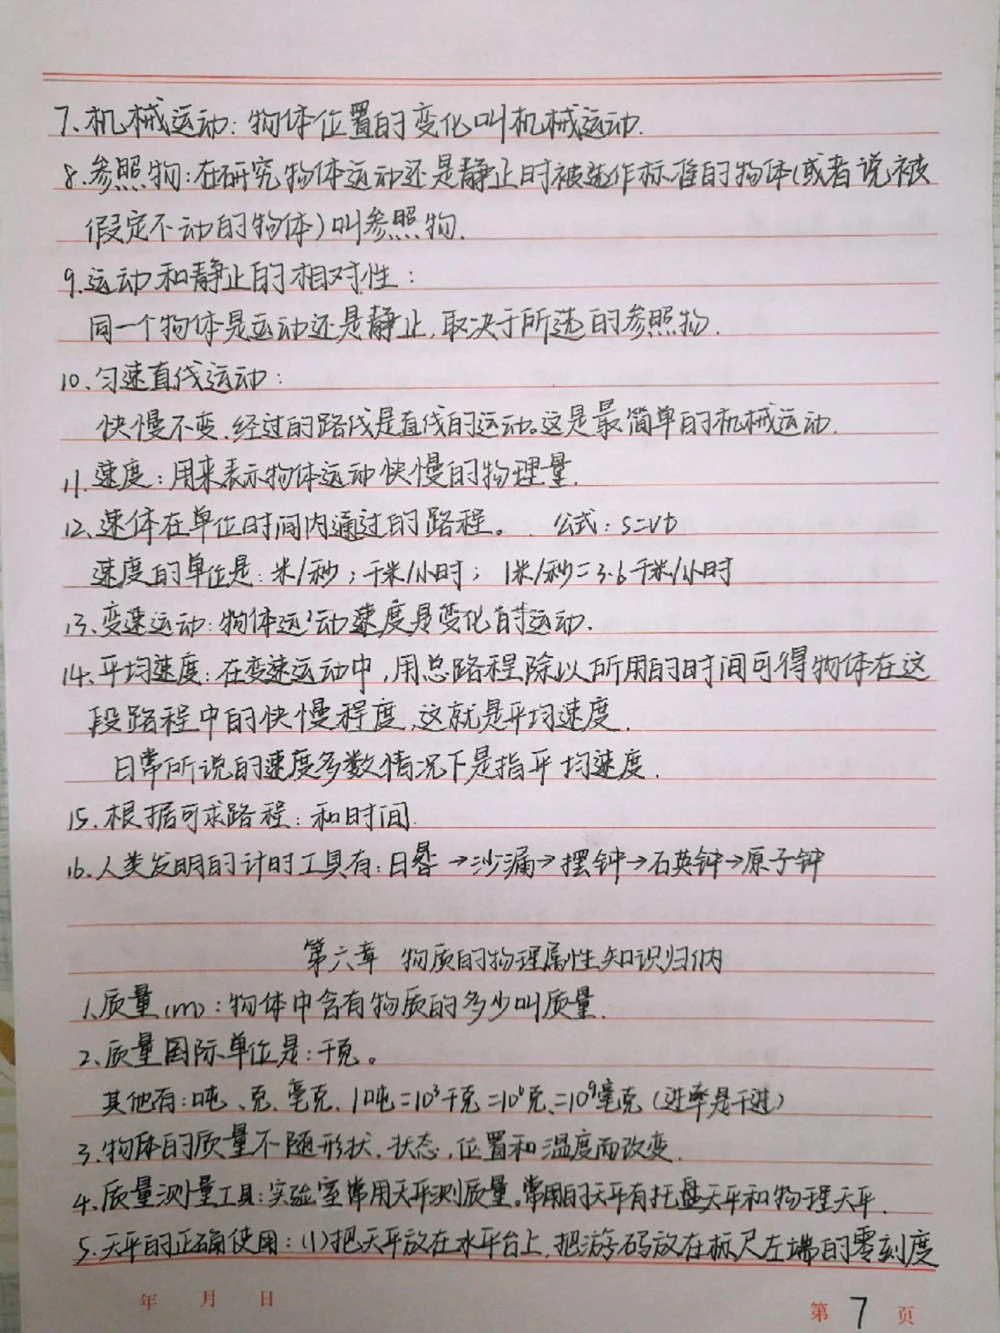 7、机械运动：物体位置的变化叫机械运动.
8.参照物：在研究物体运动还是静止时被选作标准的物体(或者说被
假定不动的物体)叫参照物.
9.运动和静止的相对性：
同一个物体是运动还是静止，取决于所选的参照物.
10.匀速直线运动：
快慢不变，经过的路线是直线的运动。这是最简单的机械运动.
11.速度：用来表示物体运动快慢的物理量.
12、速体在单位时间内通过的路程。 公式：s=vt
速度的单位是：米/秒；千米/小时； 1米/秒=3.6千米/小时
13.变速运动：物体运动速度是变化的运动.
14.平均速度：在变速运动中，用总路程除以所用的时间可得物体在这
段路程中的快慢程度，这就是平均速度.
日常所说的速度多数情况下是指平均速度.
15.根据可求路程：和时间.
16.人类发明的计时工具有：日晷→沙漏→摆钟→石英钟→原子钟
第六章 物质的物理属性知识归纳
1.质量(m)：物体中含有物质的多少叫质量.
2、质量国际单位是：千克。
其他有：吨、克、毫克，1吨=10³千克= 克=10⁹毫克(进率是千进)
3.物体的质量不随形状，状态，位置和温度而改变.
4.质量测量工具：实验室常用天平测质量。常用的天平有托盘天平和物理天平.
5.天平的正确使用：(1)把天平放在水平台上，把游码放在标尺左端的零刻度
年 月 日
第 7 页